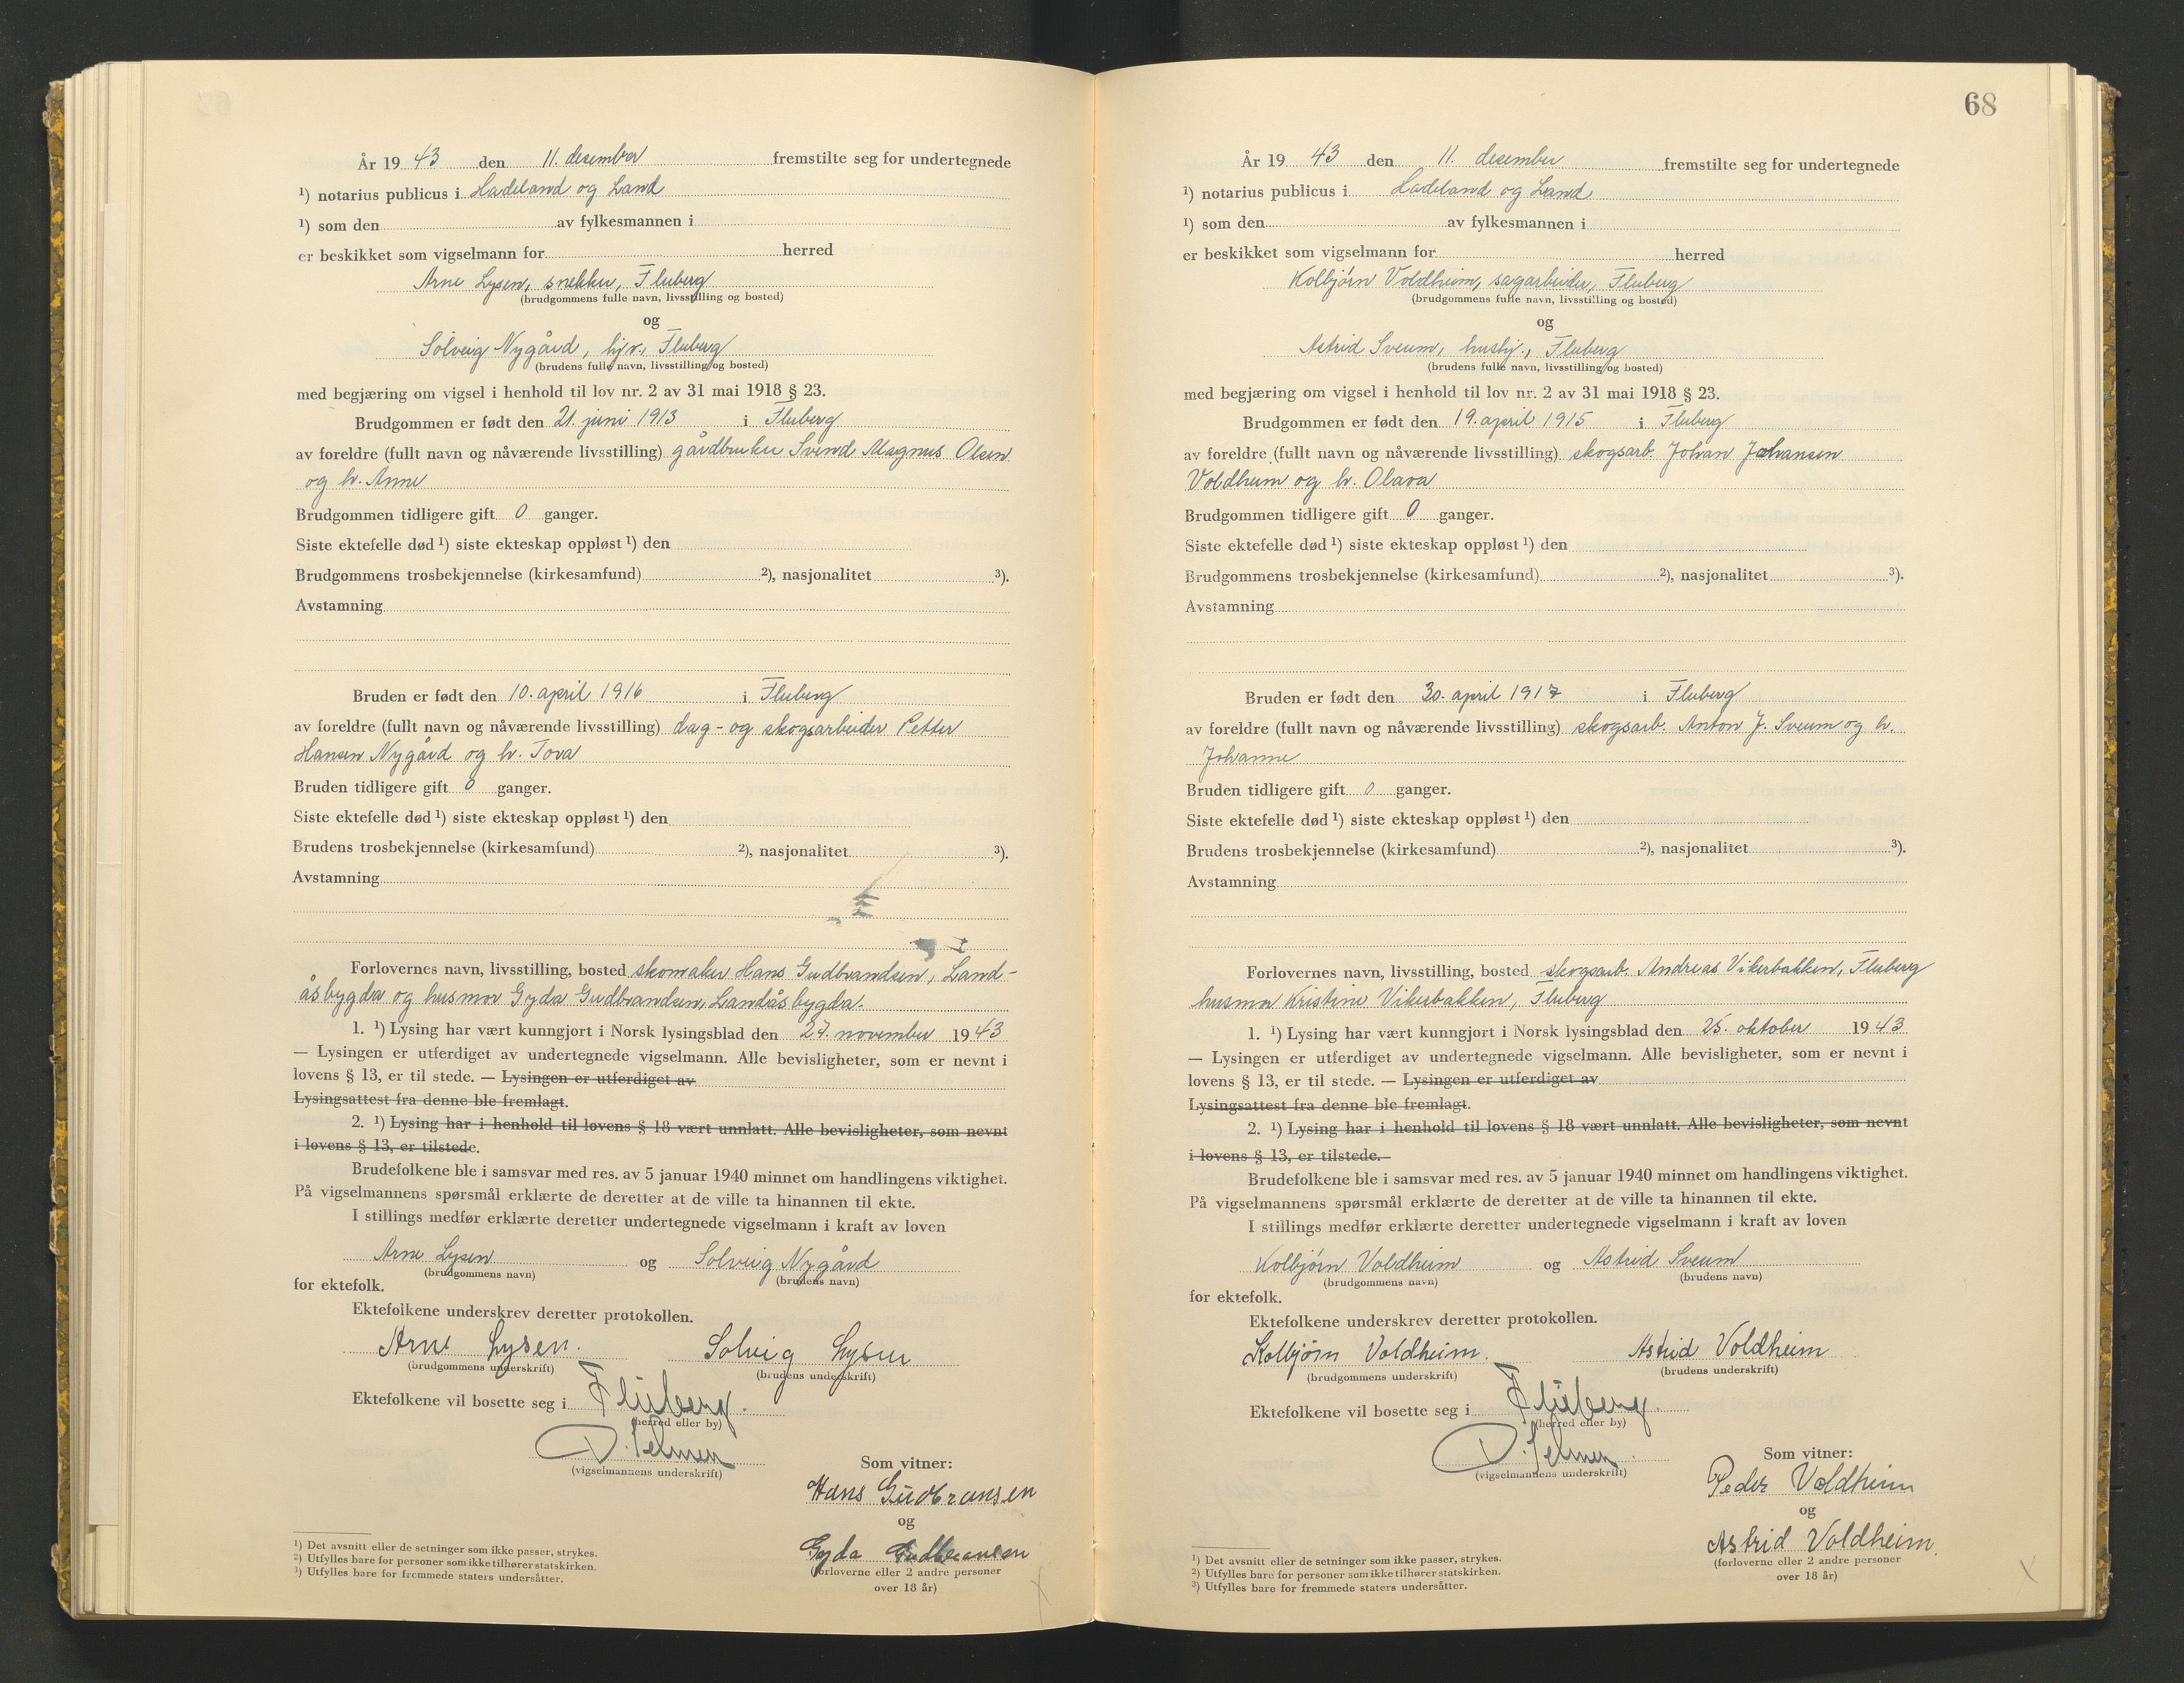 År 19 43 den 11. desember fremstilte seg for undertegnede
¹) notarius publicus i Hadeland og Land
¹) som den av fylkesmannen i
er beskikket som vigselmann for herred
Arne Lysen, snekker, Fluberg
(brudgommens fulle navn, livsstilling og bosted)
og
Solveig Nygård, hjv., Fluberg
(brudens fulle navn, livsstilling og bosted)
med begjæring om vigsel i henhold til lov nr. 2 av 31 mai 1918 § 23.
Brudgommen er født den 21. juni 1913 i Fluberg
av foreldre (fullt navn og nåværende livsstilling) gårdbruker Svend Magnus Olsen
og h. Anne
Brudgommen tidligere gift 0 ganger.
Siste ektefelle død ¹) siste ekteskap oppløst ¹) den
Brudgommens trosbekjennelse (kirkesamfund) ²), nasjonalitet ³).
Avstamning
Bruden er født den 10. april 1916 i Fluberg
av foreldre (fullt navn og nåværende livsstilling) dag- og skogsarbeider Petter
Hansen Nygård og h. Tova
Bruden tidligere gift 0 ganger.
Siste ektefelle død ¹) siste ekteskap oppløst ¹) den
Brudens trosbekjennelse (kirkesamfund) ²), nasjonalitet ³).
Avstamning
Forlovernes navn, livsstilling, bosted skomaker Hans Gudbrandsen, Land-
åsbygda og husmor Gyda Gudbrandsen, Landåsbygda.
1. ¹) Lysing har vært kunngjort i Norsk lysingsblad den 27. november 19 43
— Lysingen er utferdiget av undertegnede vigselmann. Alle bevisligheter, som er nevnt i
lovens § 13, er til stede. — Lysingen er utferdiget av
Lysingsattest fra denne ble fremlagt.
2. ¹) Lysing har i henhold til lovens § 18 vært unnlatt. Alle bevisligheter, som nevnt
i lovens § 13, er tilstede.
Brudefolkene ble i samsvar med res. av 5 januar 1940 minnet om handlingens viktighet.
På vigselmannens spørsmål erklærte de deretter at de ville ta hinannen til ekte.
I stillings medfør erklærte deretter undertegnede vigselmann i kraft av loven
Arne Lysen og Solveig Nygård
(brudgommens navn) (brudens navn)
for ektefolk.
Ektefolkene underskrev deretter protokollen.
Arne Lysen. Solveig Lysen
(brudgommens underskrift) (brudens underskrift)
Ektefolkene vil bosette seg i Fluberg.
(herred eller by)
D. Selmer
(vigselmannens underskrift)
Som vitner:
Hans Gudbransen
og
Gyda Gudbransen
(forloverne eller 2 andre personer
over 18 år)
¹) Det avsnitt eller de setninger som ikke passer, strykes.
²) Utfylles bare for personer som ikke tilhører statskirken.
³) Utfylles bare for fremmede staters undersåtter.
68
År 19 43 den 11. desember fremstilte seg for undertegnede
¹) notarius publicus i Hadeland og Land
¹) som den av fylkesmannen i
er beskikket som vigselmann for herred
Kolbjørn Voldheim, sagarbeider, Fluberg
(brudgommens fulle navn, livsstilling og bosted)
og
Astrid Sveum, hushj., Fluberg
(brudens fulle navn, livsstilling og bosted)
med begjæring om vigsel i henhold til lov nr. 2 av 31 mai 1918 § 23.
Brudgommen er født den 19. april 1915 i Fluberg
av foreldre (fullt navn og nåværende livsstilling) skogsarb. Johan Johansen
Voldheim og h. Olava
Brudgommen tidligere gift 0 ganger.
Siste ektefelle død ¹) siste ekteskap oppløst ¹) den
Brudgommens trosbekjennelse (kirkesamfund) ²), nasjonalitet ³).
Avstamning
Bruden er født den 30. april 1917 i Fluberg
av foreldre (fullt navn og nåværende livsstilling) skogsarb. Anton J. Sveum og h.
Johanne
Bruden tidligere gift 0 ganger.
Siste ektefelle død ¹) siste ekteskap oppløst ¹) den
Brudens trosbekjennelse (kirkesamfund) ²), nasjonalitet ³).
Avstamning
Forlovernes navn, livsstilling, bosted skogsarb. Andreas Vikerbakken, Fluberg
husmor Kristine Vikerbakken, Fluberg
1. ¹) Lysing har vært kunngjort i Norsk lysingsblad den 25. oktober 19 43
— Lysingen er utferdiget av undertegnede vigselmann. Alle bevisligheter, som er nevnt i
lovens § 13, er til stede. — Lysingen er utferdiget av
Lysingsattest fra denne ble fremlagt.
2. ¹) Lysing har i henhold til lovens § 18 vært unnlatt. Alle bevisligheter, som nevnt
i lovens § 13, er tilstede.
Brudefolkene ble i samsvar med res. av 5 januar 1940 minnet om handlingens viktighet.
På vigselmannens spørsmål erklærte de deretter at de ville ta hinannen til ekte.
I stillings medfør erklærte deretter undertegnede vigselmann i kraft av loven
Kolbjørn Voldheim og Astrid Sveum
(brudgommens navn) (brudens navn)
for ektefolk.
Ektefolkene underskrev deretter protokollen.
Kolbjørn Voldheim. Astrid Voldheim
(brudgommens underskrift) (brudens underskrift)
Ektefolkene vil bosette seg i Fluberg.
(herred eller by)
D. Selmer.
(vigselmannens underskrift)
Som vitner:
Peder Voldheim
og
Astrid Voldheim.
(forloverne eller 2 andre personer
over 18 år)
¹) Det avsnitt eller de setninger som ikke passer, strykes.
²) Utfylles bare for personer som ikke tilhører statskirken.
³) Utfylles bare for fremmede staters undersåtter.